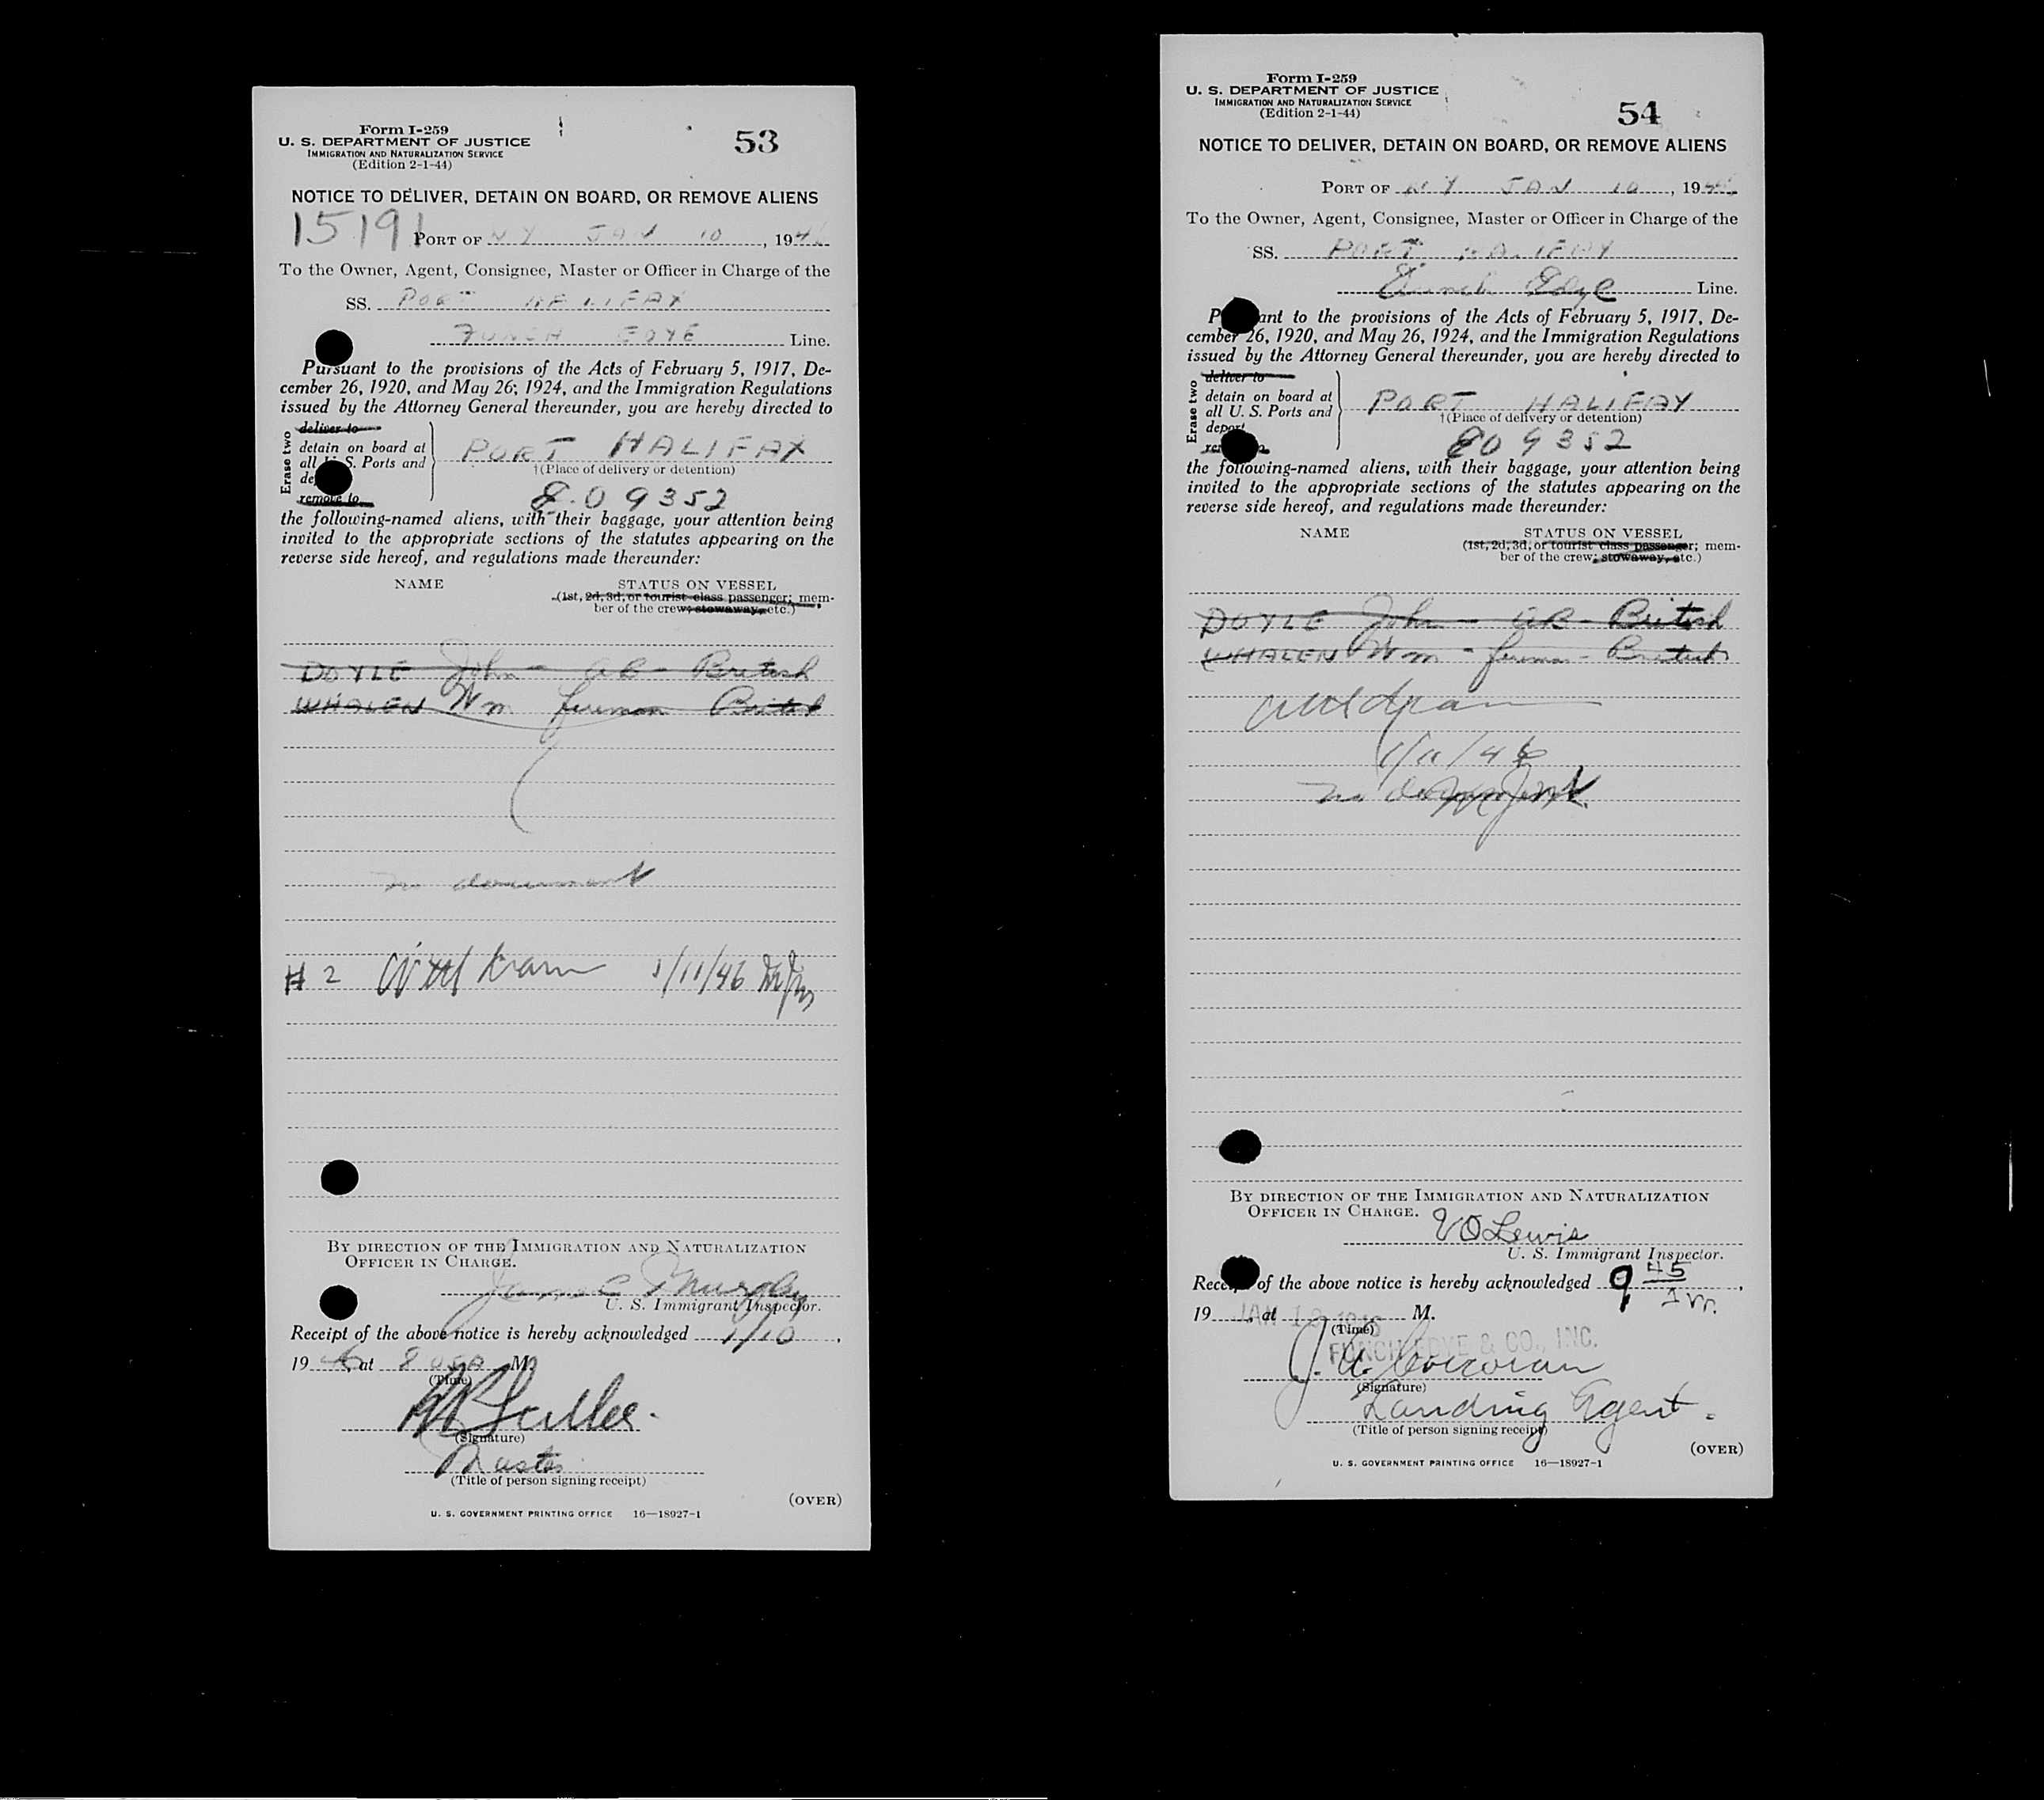 Form I-259
U. S. DEPARTMENT OF JUSTICE
IMMIGRATION AND NATURALIZATION SERVICE
(Edition 2-1-44)
53
NOTICE TO DELIVER, DETAIN ON BOARD, OR REMOVE ALIENS
15191
PORT OF NY JAN 10, 1946
To the Owner, Agent, Consignee, Master or Officer in Charge of the
SS. PORT HALIFAX
FUNCH EDYE Line.
Pursuant to the provisions of the Acts of February 5, 1917, De-
cember 26, 1920, and May 26, 1924, and the Immigration Regulations
issued by the Attorney General thereunder, you are hereby directed to
Erase two
deliver to
detain on board at
all U. S. Ports and
de
remove to
PORT HALIFAX
†(Place of delivery or detention)
809352
the following-named aliens, with their baggage, your attention being
invited to the appropriate sections of the statutes appearing on the
reverse side hereof, and regulations made thereunder:
NAME STATUS ON VESSEL
(1st, 2d, 3d, or tourist class passenger; mem-
ber of the crew; stowaway, etc.)
DOYLE John - AB - British
WHALEN Wm fireman British
no document
# 2 1/11/46
BY DIRECTION OF THE IMMIGRATION AND NATURALIZATION
OFFICER IN CHARGE.
James Murphy
U. S. Immigrant Inspector.
Receipt of the above notice is hereby acknowledged 1/10,
1946, at 8 05 A M.
(Time)
(Signature)
Master
(Title of person signing receipt)
(OVER)
U. S. GOVERNMENT PRINTING OFFICE 16—18927-1
Form I-259
U. S. DEPARTMENT OF JUSTICE
IMMIGRATION AND NATURALIZATION SERVICE
(Edition 2-1-44)
54
NOTICE TO DELIVER, DETAIN ON BOARD, OR REMOVE ALIENS
PORT OF NY JAN 10, 1946
To the Owner, Agent, Consignee, Master or Officer in Charge of the
SS. PORT HALIFAX
Funch Edye Line.
Pursuant to the provisions of the Acts of February 5, 1917, De-
cember 26, 1920, and May 26, 1924, and the Immigration Regulations
issued by the Attorney General thereunder, you are hereby directed to
Erase two
deliver to
detain on board at
all U. S. Ports and
deport
re
PORT HALIFAX
†(Place of delivery or detention)
809352
the following-named aliens, with their baggage, your attention being
invited to the appropriate sections of the statutes appearing on the
reverse side hereof, and regulations made thereunder:
NAME STATUS ON VESSEL
(1st, 2d, 3d, or tourist class passenger; mem-
ber of the crew; stowaway, etc.)
DOYLE John - AB - British
WHALEN Wm - fireman - British
1/11/46
no document
BY DIRECTION OF THE IMMIGRATION AND NATURALIZATION
OFFICER IN CHARGE.
VO Lewis
U. S. Immigrant Inspector.
Receipt of the above notice is hereby acknowledged 9 45,
19 JAN at M.
(Time)
FUNCH EDYE & CO., INC.
J. A. Corcoran
(Signature)
Landing Agent.
(Title of person signing receipt)
(OVER)
U. S. GOVERNMENT PRINTING OFFICE 16—18927-1